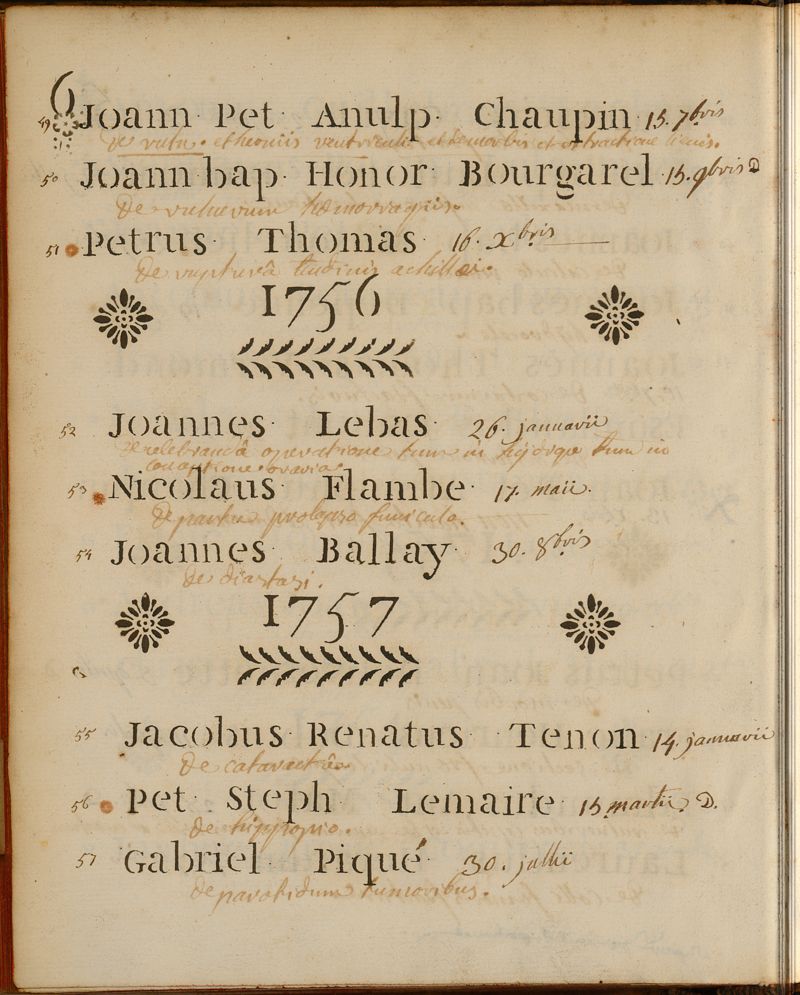 49 Joann· Pet· Anulp· Chaupin· 15. 7bris
de et ventriculi et et extractione
50 Joann· bap· Honor· Bourgarel· 15. 9bris D
de vulnerum hæmorragiis.
51 Petrus· Thomas· 16. Xbris
de rupturâ tendinis achillei.
1756
52 Joannes· Lebas· 26. januarii
de celebrandâ operatione tum in tum in
53 Nicolaus· Flambe· 17. maii.
de partu prolapso funiculo.
54 Joannes· Ballay· 30. 8bris
de diastasi.
1757
55 Jacobus· Renatus· Tenon· 14. januarii
de cataractâ
56 Pet· Steph· Lemaire· 15. martii. D.
de hippopio.
57 Gabriel· Piqué· 30. julii
de parotidum tumoribus.